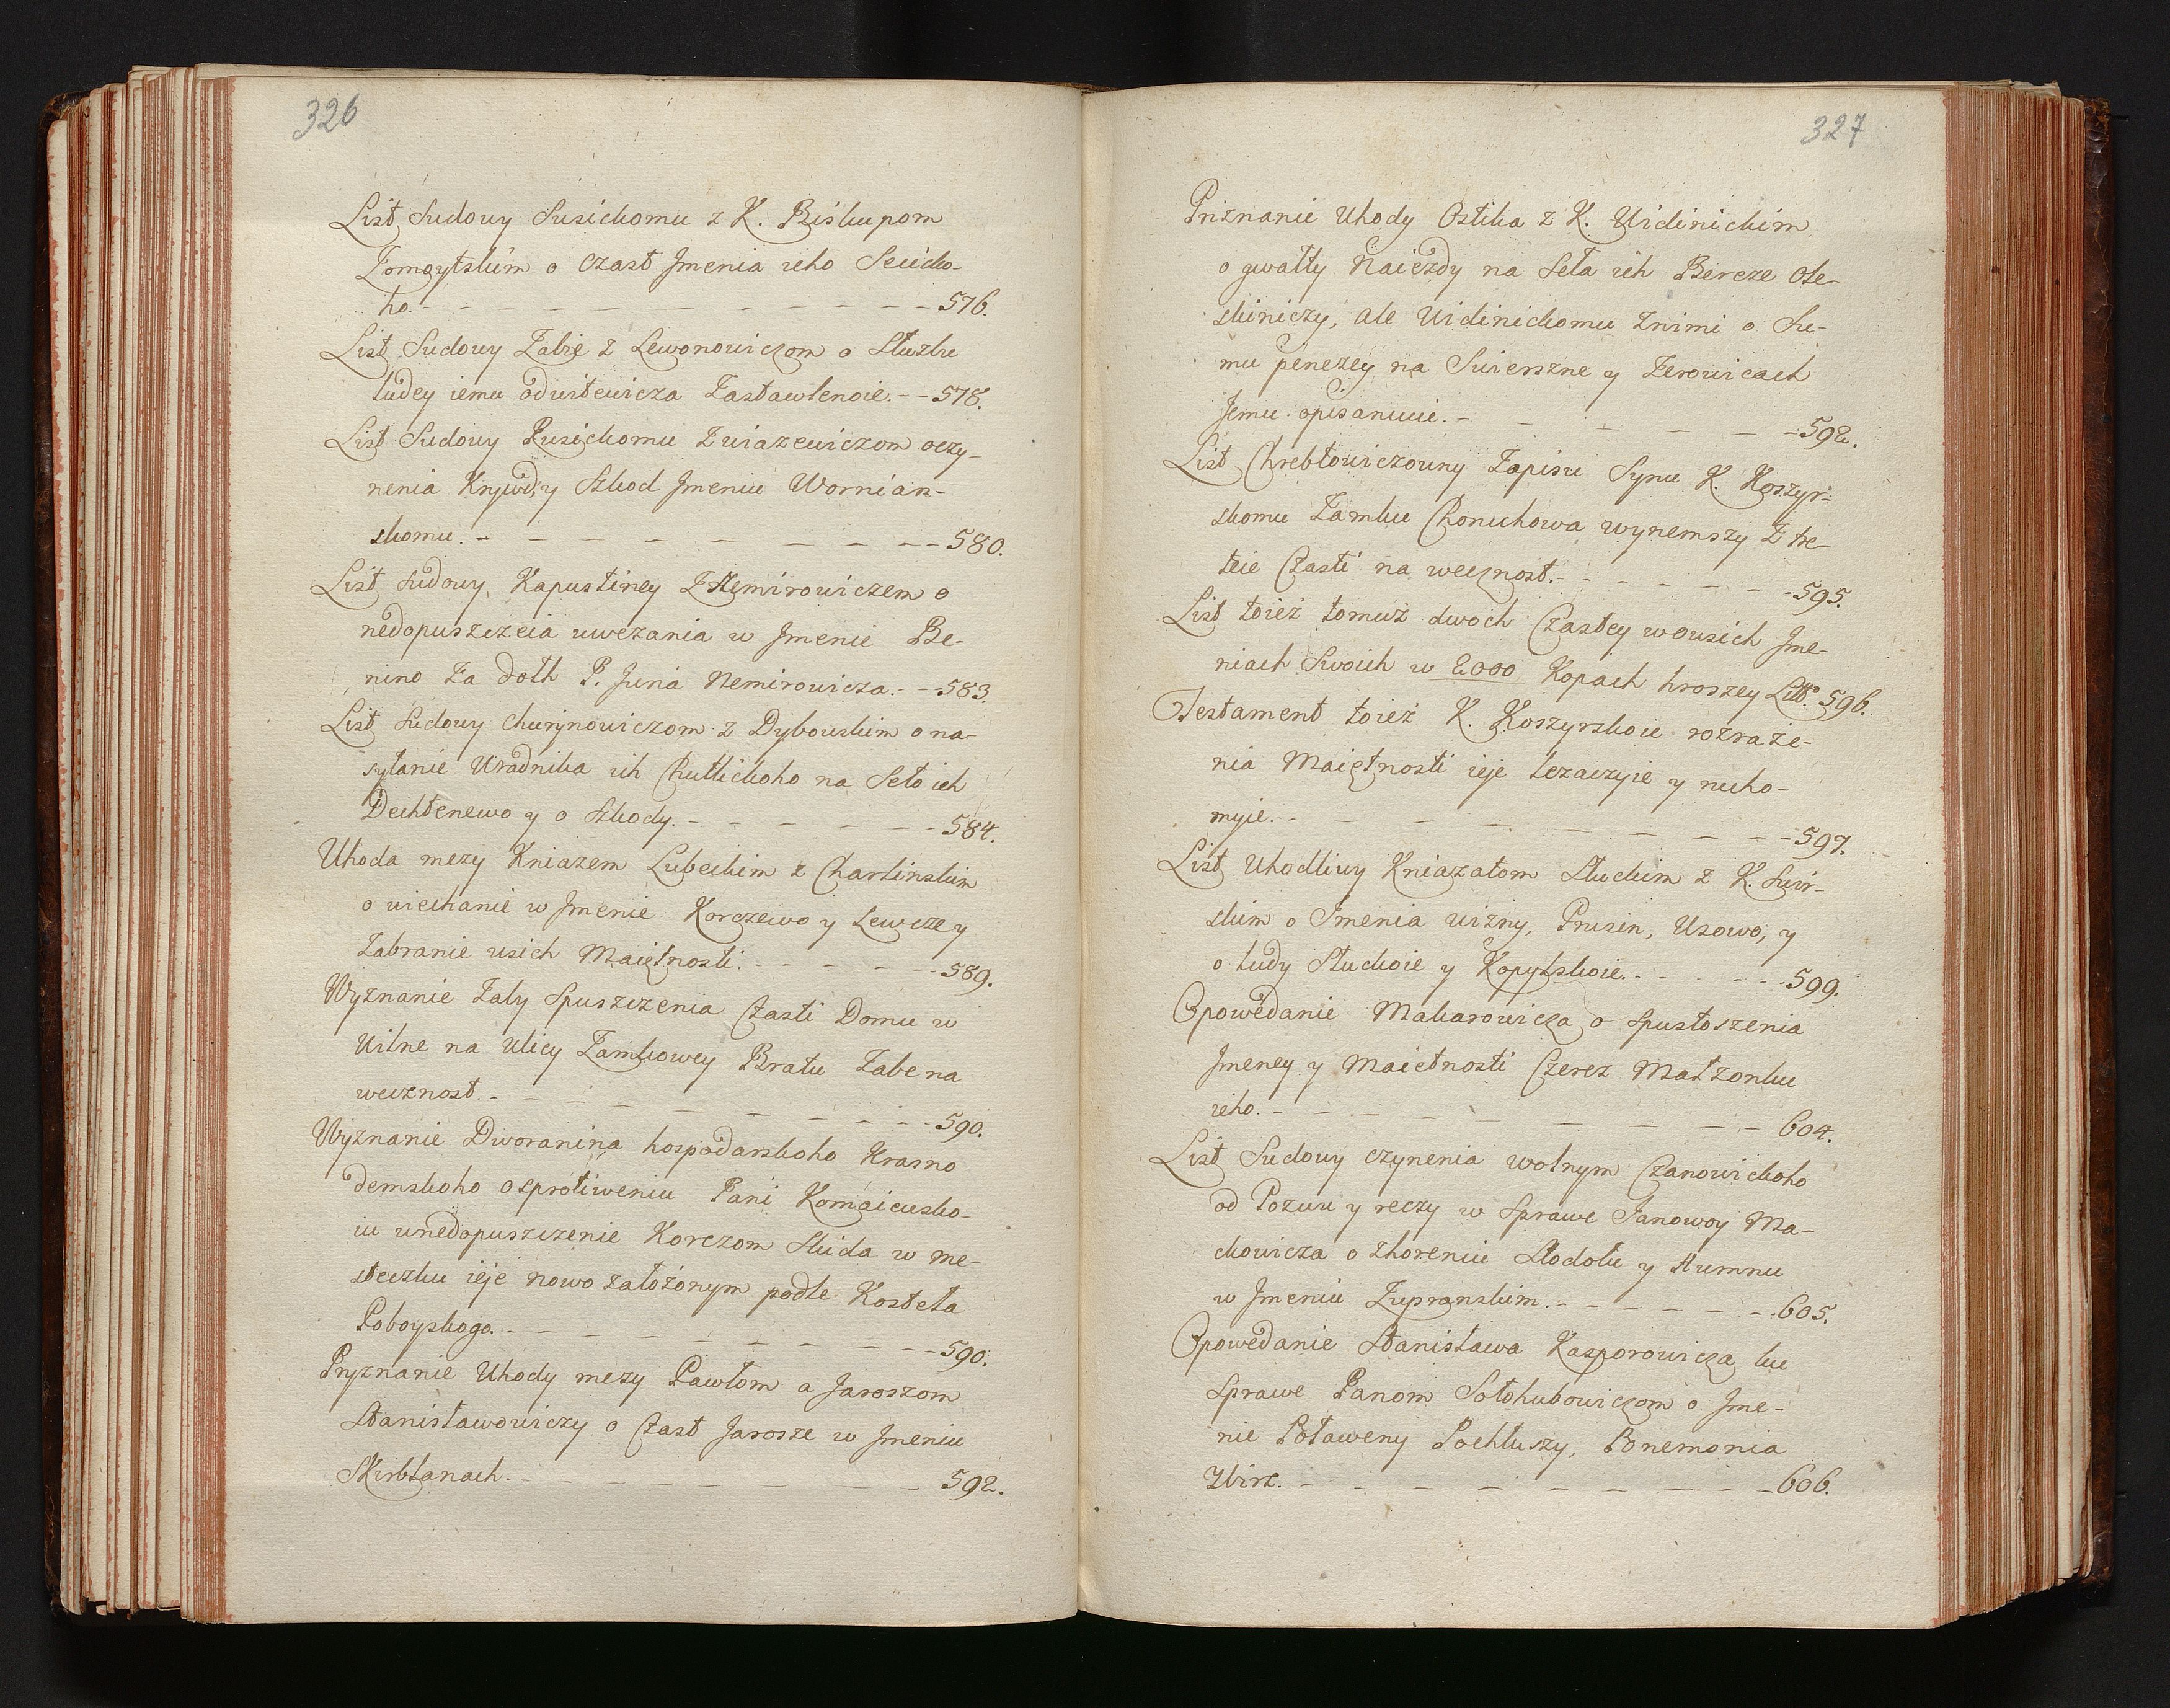 326
List Sudowy Susickomu z K. Biskupom
Żomoytskim o czast Jmenia ieho Seiicko-
ho. - - - - - - - - - 576.
List Sudowy Zabie z Lewonowiczom o Słuzbu
ludey iemu od witewicza Zastawlenoie. - - 578.
List Sudowy Rusickomu Zwiazewiczom oczy-
nenia Krywdy y Szkod Jmeniu Wornian-
skomu. - - - - - - - - 580.
List Sudowy Kapustiney Z Nemirowiczem o
nedopuszczeia uwezania w Jmenie Be-
nino Za dołh P. Juria Nemirowicza. - - 583.
List Sudowy Churynowiczom z Dybowskim o na-
syłanie Uradnika ich Chutlickoho na Seło ich
Deihtenewo y o Szkody. - - - - - 584.
Uhoda mezy Kniazem Lubeckim z Charlinskim
o wiechanie w Jmenie Korczewo y Lewcze y
Zabranie usich Maiętnosti. - - - - 589.
Wyznanie Zaby Spuszczenia Czasti Domu w
Wilne na Ulicy Zamkowey Bratu Zabe na
wecznost. - - - - - - - - 590.
Wyznanie Dworanina hospodarskoho Krasno
demskoho o sprotiweniu Pani Komaiewsko-
iu w nedopuszczenie Korczom Skida w me-
steczku ieje nowo założonym podle Kosteła
Poboyskogo. - - - - - - - 590.
Pryznanie Uhody mezy Pawłom a Jaroszom
Stanisławowiczy o Czast Jarosze w Jmeniu
Skirblanach. - - - - - - - 592.
327
Priznanie Uhody Ostika z K. Widinickim
o gwałty Naiezdy na Seła ich Bercze Ole-
skiniczy, ale Widinickomu Z nimi o Su-
mu penezey na Swierszne y Zerowicach
Jemu opisanuiu. - - - - - 592.
List Chrebtowiczowny Zapisu Synu K. Koszyr-
skomu Zamku Choruchowa wynemszy Z tre-
teie Czasti na wecznost. - - - - - 595.
List toież tomuż dwoch Czastey wo usich Jme-
niach Swoich w 2000 Kopach hroszey Litt. 596.
Testament toież K. Koszyrskoie rozraże-
nia Maiętnosti ieje leżaczyie y rucho-
myie. - - - - - - - - 597.
List Uhodliwy Kniazatom Słuckim z K. Swir-
skim o Imenia wizny, Prusin, Usowo, y
o ludy Słuckoie y Kopytskoie. - - - - 599.
Opowedanie Makarowicza o spustoszenia
Jmeney y Maietnosti Czerez Małzonku
ieho. - - - - - - - - 604.
List Sudowy czynenia wolnym Czanowickoho
od Pozwu y reczy w Sprawe Janowoy Ma-
ckowicza o zhoreniu Stodołu y Humnu
w Jmeniu Zupranskim. - - - - - 605.
Opowedanie Stanisława Kasporowicza ku
Sprawe Panom Sołohubowiczom o Jme-
nie Poławeny Pochłuszy, Ponemonia
Zbirz. - - - - - - - - 606.